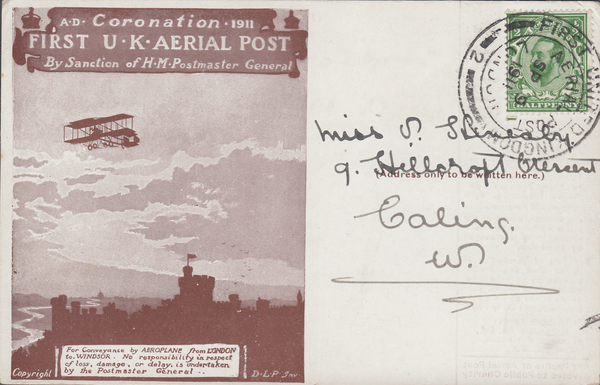 A·D· Coronation · 1911
FIRST U·K·AERIAL POST
By Sanction of H·M·Postmaster General
For Conveyance by AEROPLANE from LONDON
to WINDSOR. No responsibility in respect
of loss, damage, or delay, is undertaken
by the Postmaster General
Copyright
D·L·P Inv
FIRST UNITED KINGDOM AERIAL POST
LONDON
2
HALFPENNY
Miss
9. Hillcroft Crescent
(Address only to be written here.)
Ealing.
W.